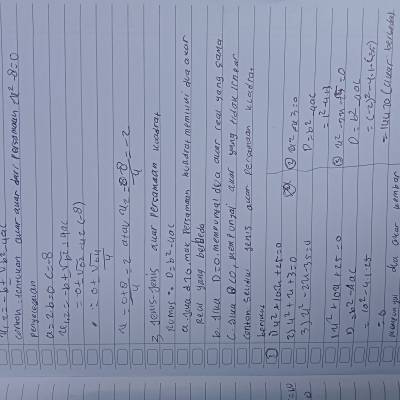 x1,2 = -b ± √b²-4ac
contoh = tentukan akar akar dari persamaan 2x²-8=0
penyelesaian
a=2 b=0 c=-8
x1,2 = -b ± √b²-4ac
= 0 ± √0²-4.2 (-8)
= 0 ±
= 2 atau x2 = = -2
3 Jenis-Jenis akar Persamaan kuadrat
Rumus: D=b²-4ac
a. Jika D>0 maka Persamaan kuadrat memiliki dua akar
real yang berbeda
b. Jika D=0 mempunyai dua akar real yang sama
c. Jika D<0, mempunyai akar yang tidak
contoh selidiki jenis akar persamaan kuadrat
berikut
1) x²+10x+25=0
2) x²+x+3=0
3) x²-2x-35=0
1 x²+10x+25=0
D=b²-4ac
=10²-4.1.25
=0
mempunyai dua akar kembar
2 x²+x+3=0
D=b²-4ac
3 x²-2x-35=0
D=b²-4ac
=(-2)²-4.1.(-35)
(akar berbeda)